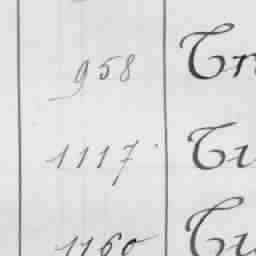 958 Tr
1117 Tu
1160 Tu